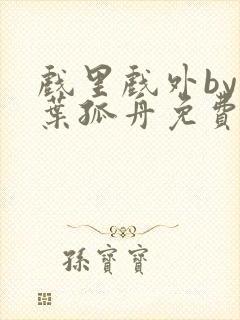 戲里戲外by
葉孤舟免費
孫寶寶